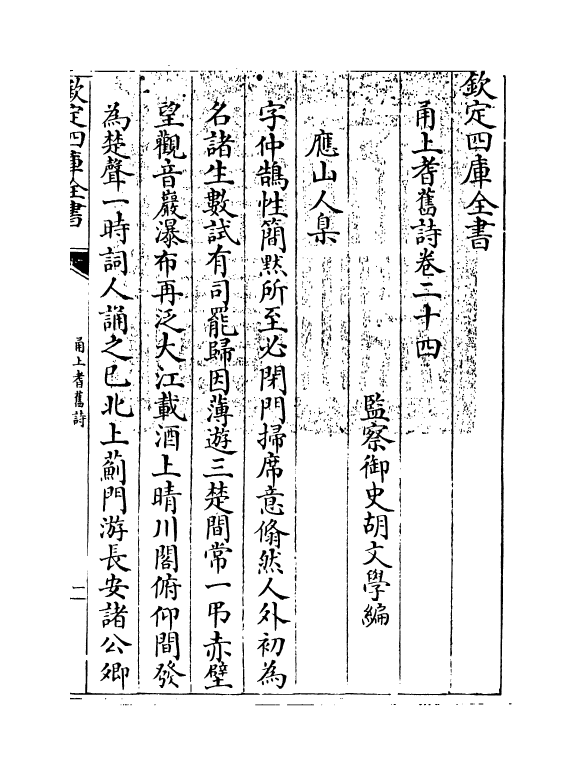 欽定四庫全書
甬上耆舊詩卷二十四
監察御史胡文學編
應山人臬
字仲鵠性簡黙所至必閉門掃席意翛然人外初為
名諸生數試有司罷歸因薄遊三楚間常一弔赤壁
望觀音巖瀑布再泛大江載酒上晴川閣俯仰間發
為楚聲一時詞人誦之已北上薊門游長安諸公卿
欽定四庫全書
甬上耆舊詩
一